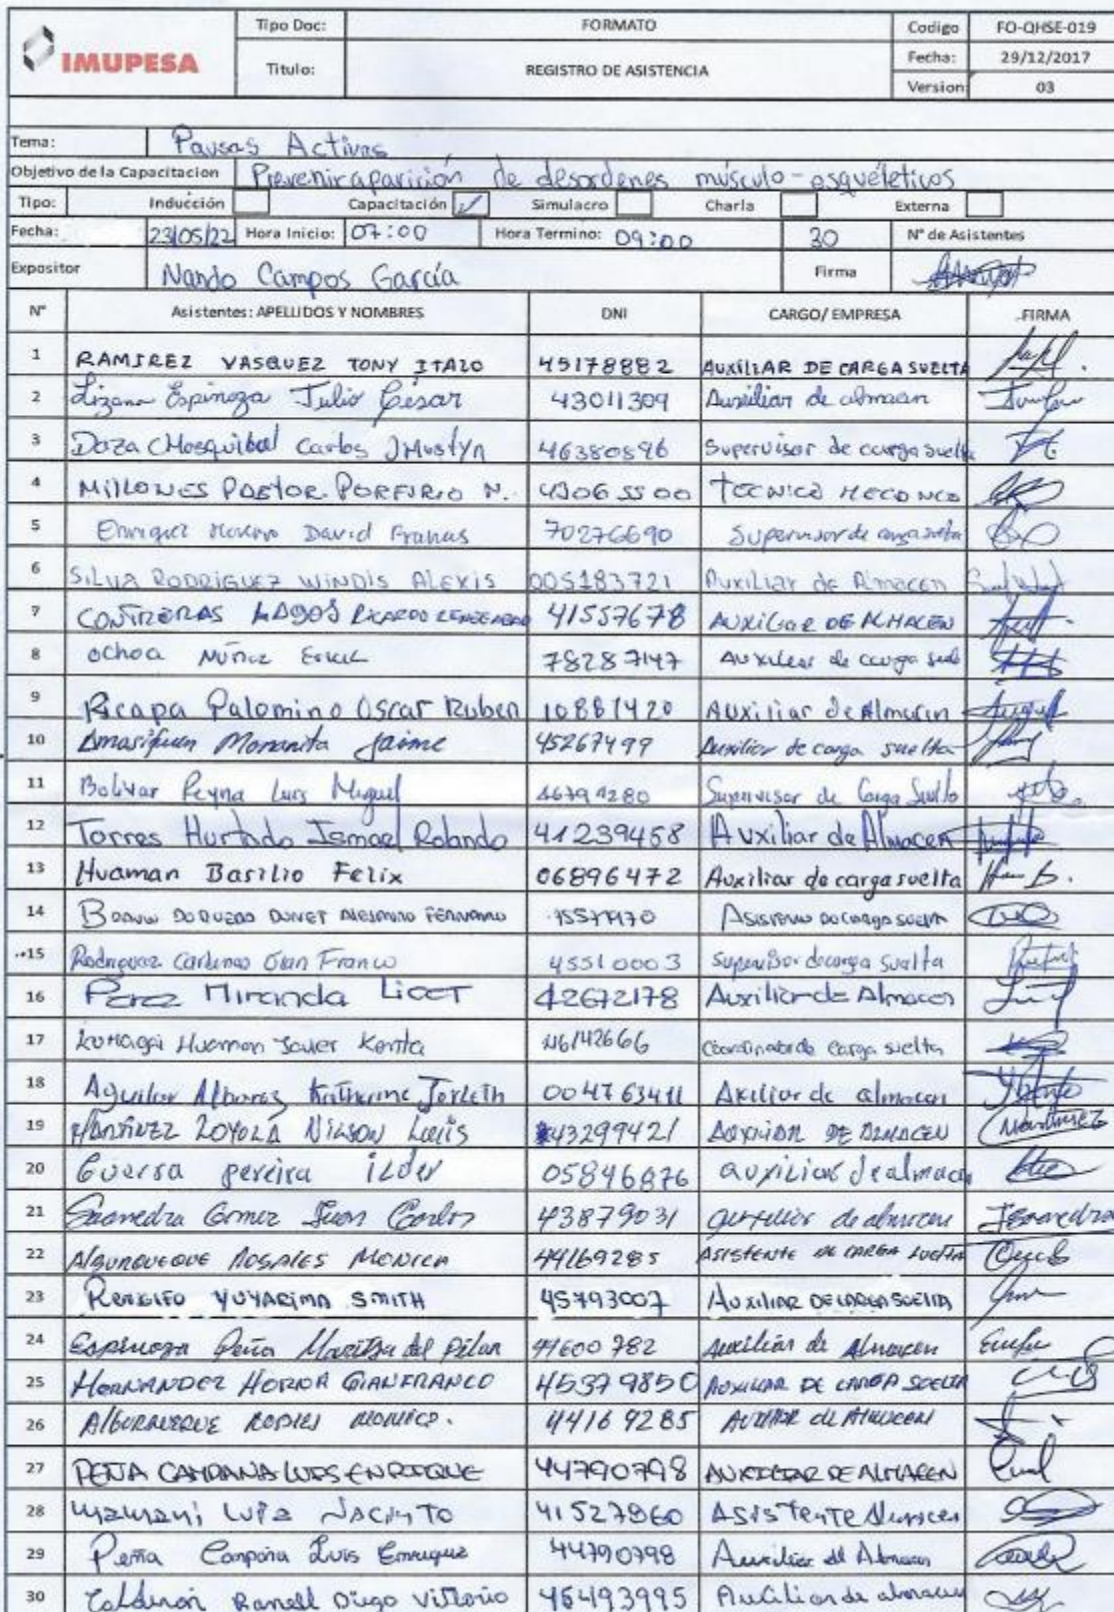 IMUPESA
Tipo Doc: FORMATO Codigo FO-QHSE-019
Titulo: REGISTRO DE ASISTENCIA Fecha: 29/12/2017
Version: 03
Tema: Pausas Activas
Objetivo de la Capacitacion Prevenir aparición de desordenes músculo-esquéleticos
Tipo: Inducción Capacitación ✓ Simulacro Charla Externa
Fecha: 23/05/22 Hora Inicio: 07:00 Hora Termino: 09:00 30 N° de Asistentes
Expositor Nando Campos García Firma
N° Asistentes: APELLIDOS Y NOMBRES DNI CARGO/ EMPRESA FIRMA
1 RAMIREZ VASQUEZ TONY ITALO 45178882 AUXILIAR DE CARGA SUELTA
2 Lizana Espinoza Julio César 43011309 Auxiliar de almacen
3 Daza Carlos 46380896 Supervisor de carga suelta
4 MILLONES PASTOR PORFIRIO N. 43065500 TECNICO
5 Enriquez Moreno David 70276690 Supervisor de carga suelta
6 SILVA RODRIGUEZ WINDIS ALEXIS 005183721 Auxiliar de Almacen
7 CONTRERAS LAGOS RICARDO 41557678 AUXILIAR DE ALMACEN
8 ochoa Nuñez 78287147 Auxiliar de carga
9 Ricapa Palomino Oscar Ruben 10881420 Auxiliar de Almacen
10 Amasifuen Jaime 45267499 Auxiliar de carga suelta
11 Bolivar Reyna Luis Miguel Supervisor de Carga Suelta
12 Torres Hurtado Ismael Rolando 41239458 Auxiliar de Almacen
13 Huaman Basilio Felix 06896472 Auxiliar de carga suelta
14 FERNANDO
15 Rodriguez Cardenas Gian Franco 45510003 Supervisor de carga suelta
16 Perez Miranda Licet 42672178 Auxiliar de Almacen
17 Huaman Kenta 46142666 Coordinador de carga suelta
18 Aguilar Katherine 004763411 Axiliar de almacen
19 MARTINEZ LOYOLA NILSON LUIS 43299421 AUXILIAR DE ALMACEN Martinez
20 Guerra pereira ilder 05846876 auxiliar de almacen
21 Saavedra Gomez Juan Carlos 43879031 auxiliar de almacen JSaavedra
22 ALBURQUEQUE ROSALES MONICA 44169285 ASISTENTE DE CARGA SUELTA
23 RENGIFO YUYARIMA SMITH 45793007 AUXILIAR DE CARGA SUELTA
24 Espinoza Peña Maritza del Pilar 41600782 Auxiliar de Almacen
25 HERNANDEZ GIANFRANCO 45379850 AUXILIAR DE CARGA SUELTA
26 44169285
27 PEÑA CAMPANA LUIS ENRRIQUE 44790798 AUXILIAR DE ALMACEN
28 mamani Luis Jacinto 41527960 Asistente Almacen
29 Peña Campana Luis Enrrique 44790798 Auxiliar de Almacen
30 Calderón Diego Vittorio 46493995 Auxiliar de almacen